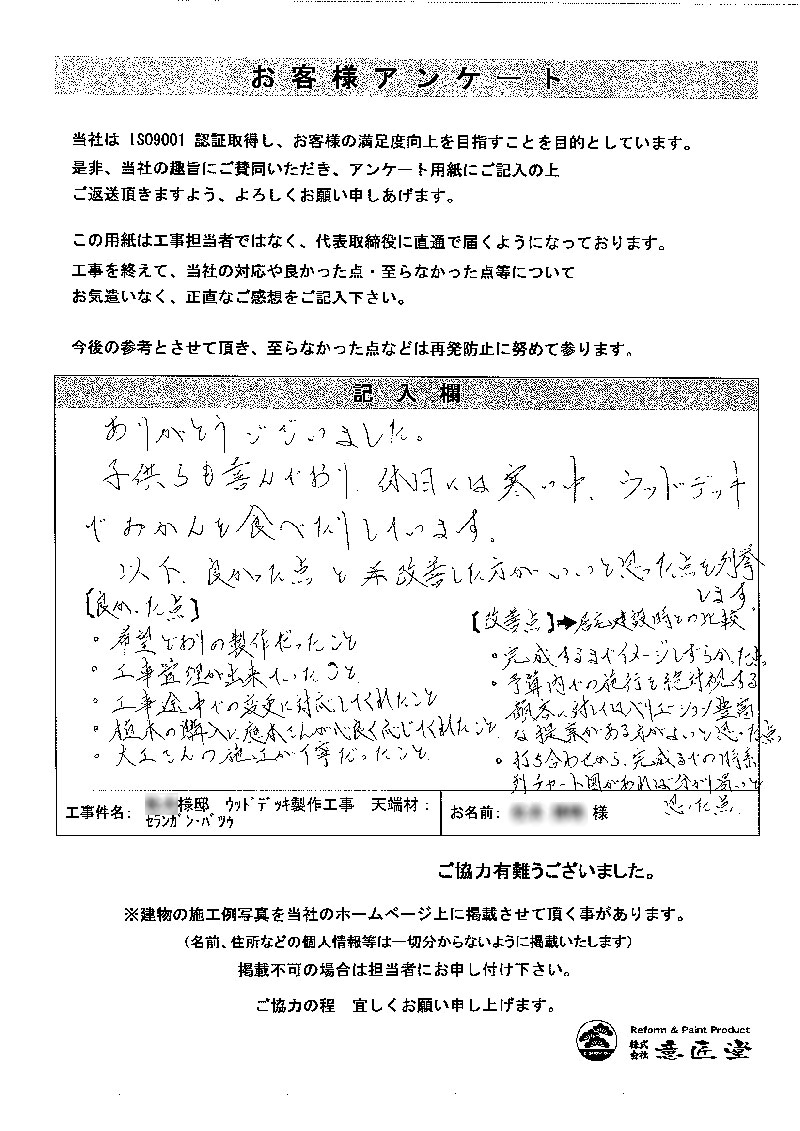 お客様アンケート
当社は ISO9001 認証取得し、お客様の満足度向上を目指すことを目的としています。
是非、当社の趣旨にご賛同いただき、アンケート用紙にご記入の上
ご返送頂きますよう、よろしくお願い申しあげます。
この用紙は工事担当者ではなく、代表取締役に直通で届くようになっております。
工事を終えて、当社の対応や良かった点・至らなかった点等について
お気遣いなく、正直なご感想をご記入下さい。
今後の参考とさせて頂き、至らなかった点などは再発防止に努めて参ります。
記入欄
ありがとうございました。
子供らも喜んでおり、休日には寒い中、ウッドデッキ
でおかんを食べたりしています。
以下、良かった点と、改善した方がいいと思った点を列挙
します。
[良かった点]
・希望どおりの製作だったこと
・工事管理が出来ていたこと
・工事途中での変更に対応してくれたこと
・植木の購入に植木さんが心良く応じてくれたこと
・大工さんの施工が丁寧だったこと
[改善点]➡居宅建設時との比較
・完成するまでイメージしずらかった点
・予算内での施行を絶対視する
顧客に対してはバリエーション豊富
な提案がある方がよいと思った点
・打ち合わせから、完成までの時系
列チャート図があれば分かり易いと
思った点
工事件名: 様邸 ウッドデッキ製作工事 天端材:
セランガン・バツウ
お名前: 様
ご協力有難うございました。
※建物の施工例写真を当社のホームページ上に掲載させて頂く事があります。
(名前、住所などの個人情報等は一切分からないように掲載いたします)
掲載不可の場合は担当者にお申し付け下さい。
ご協力の程 宜しくお願い申し上げます。
Reform & Paint Product
株式会社 意匠堂